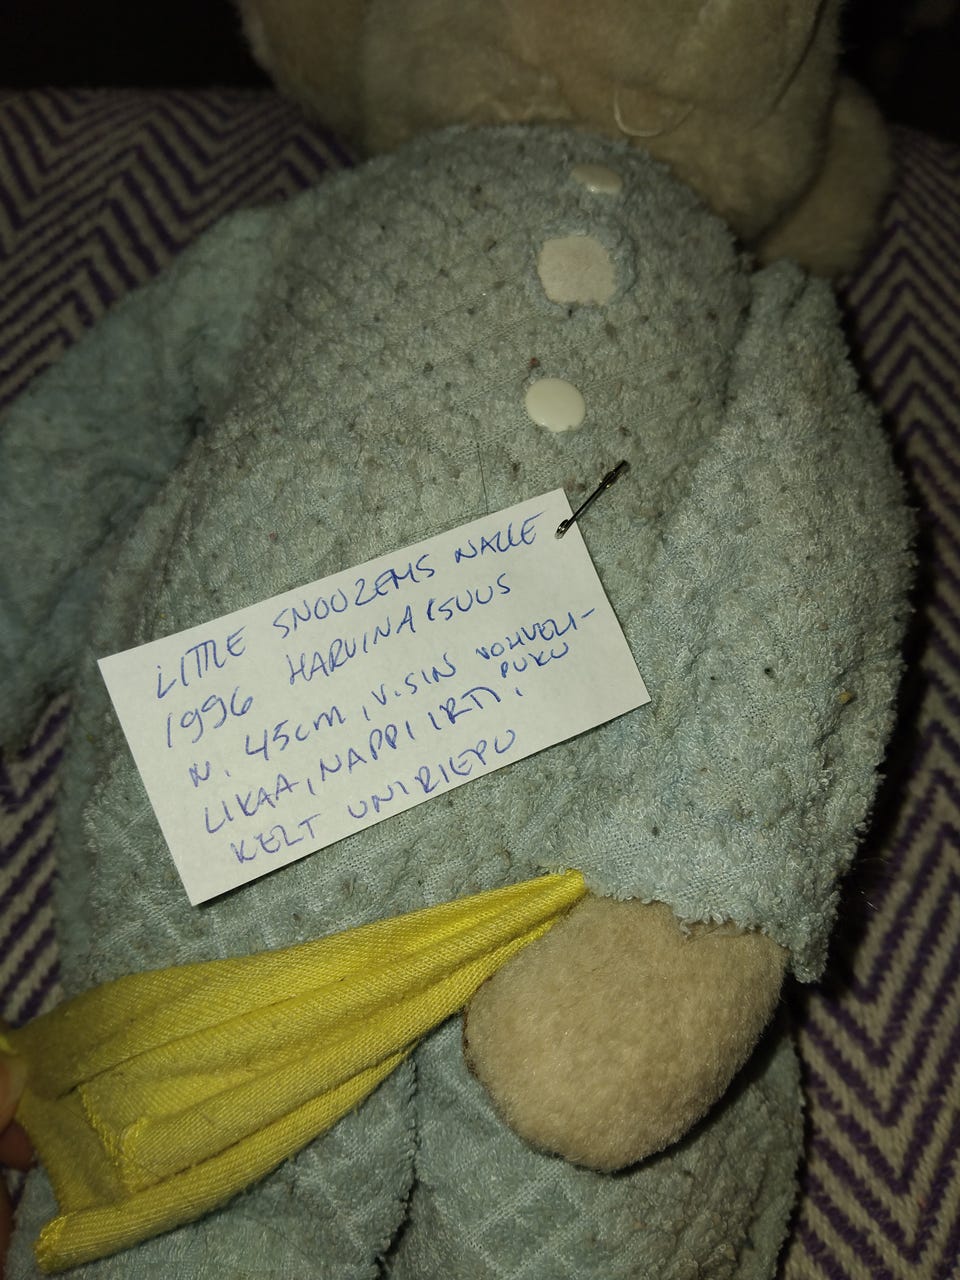 LITTLE SNOOZEMS NALLE
1996 HARVINAISUUS
N. 45CM, V.SIN VOHVELI-
PUKU
LIKAA, NAPPI IRTI,
KELT UNIRIEPU